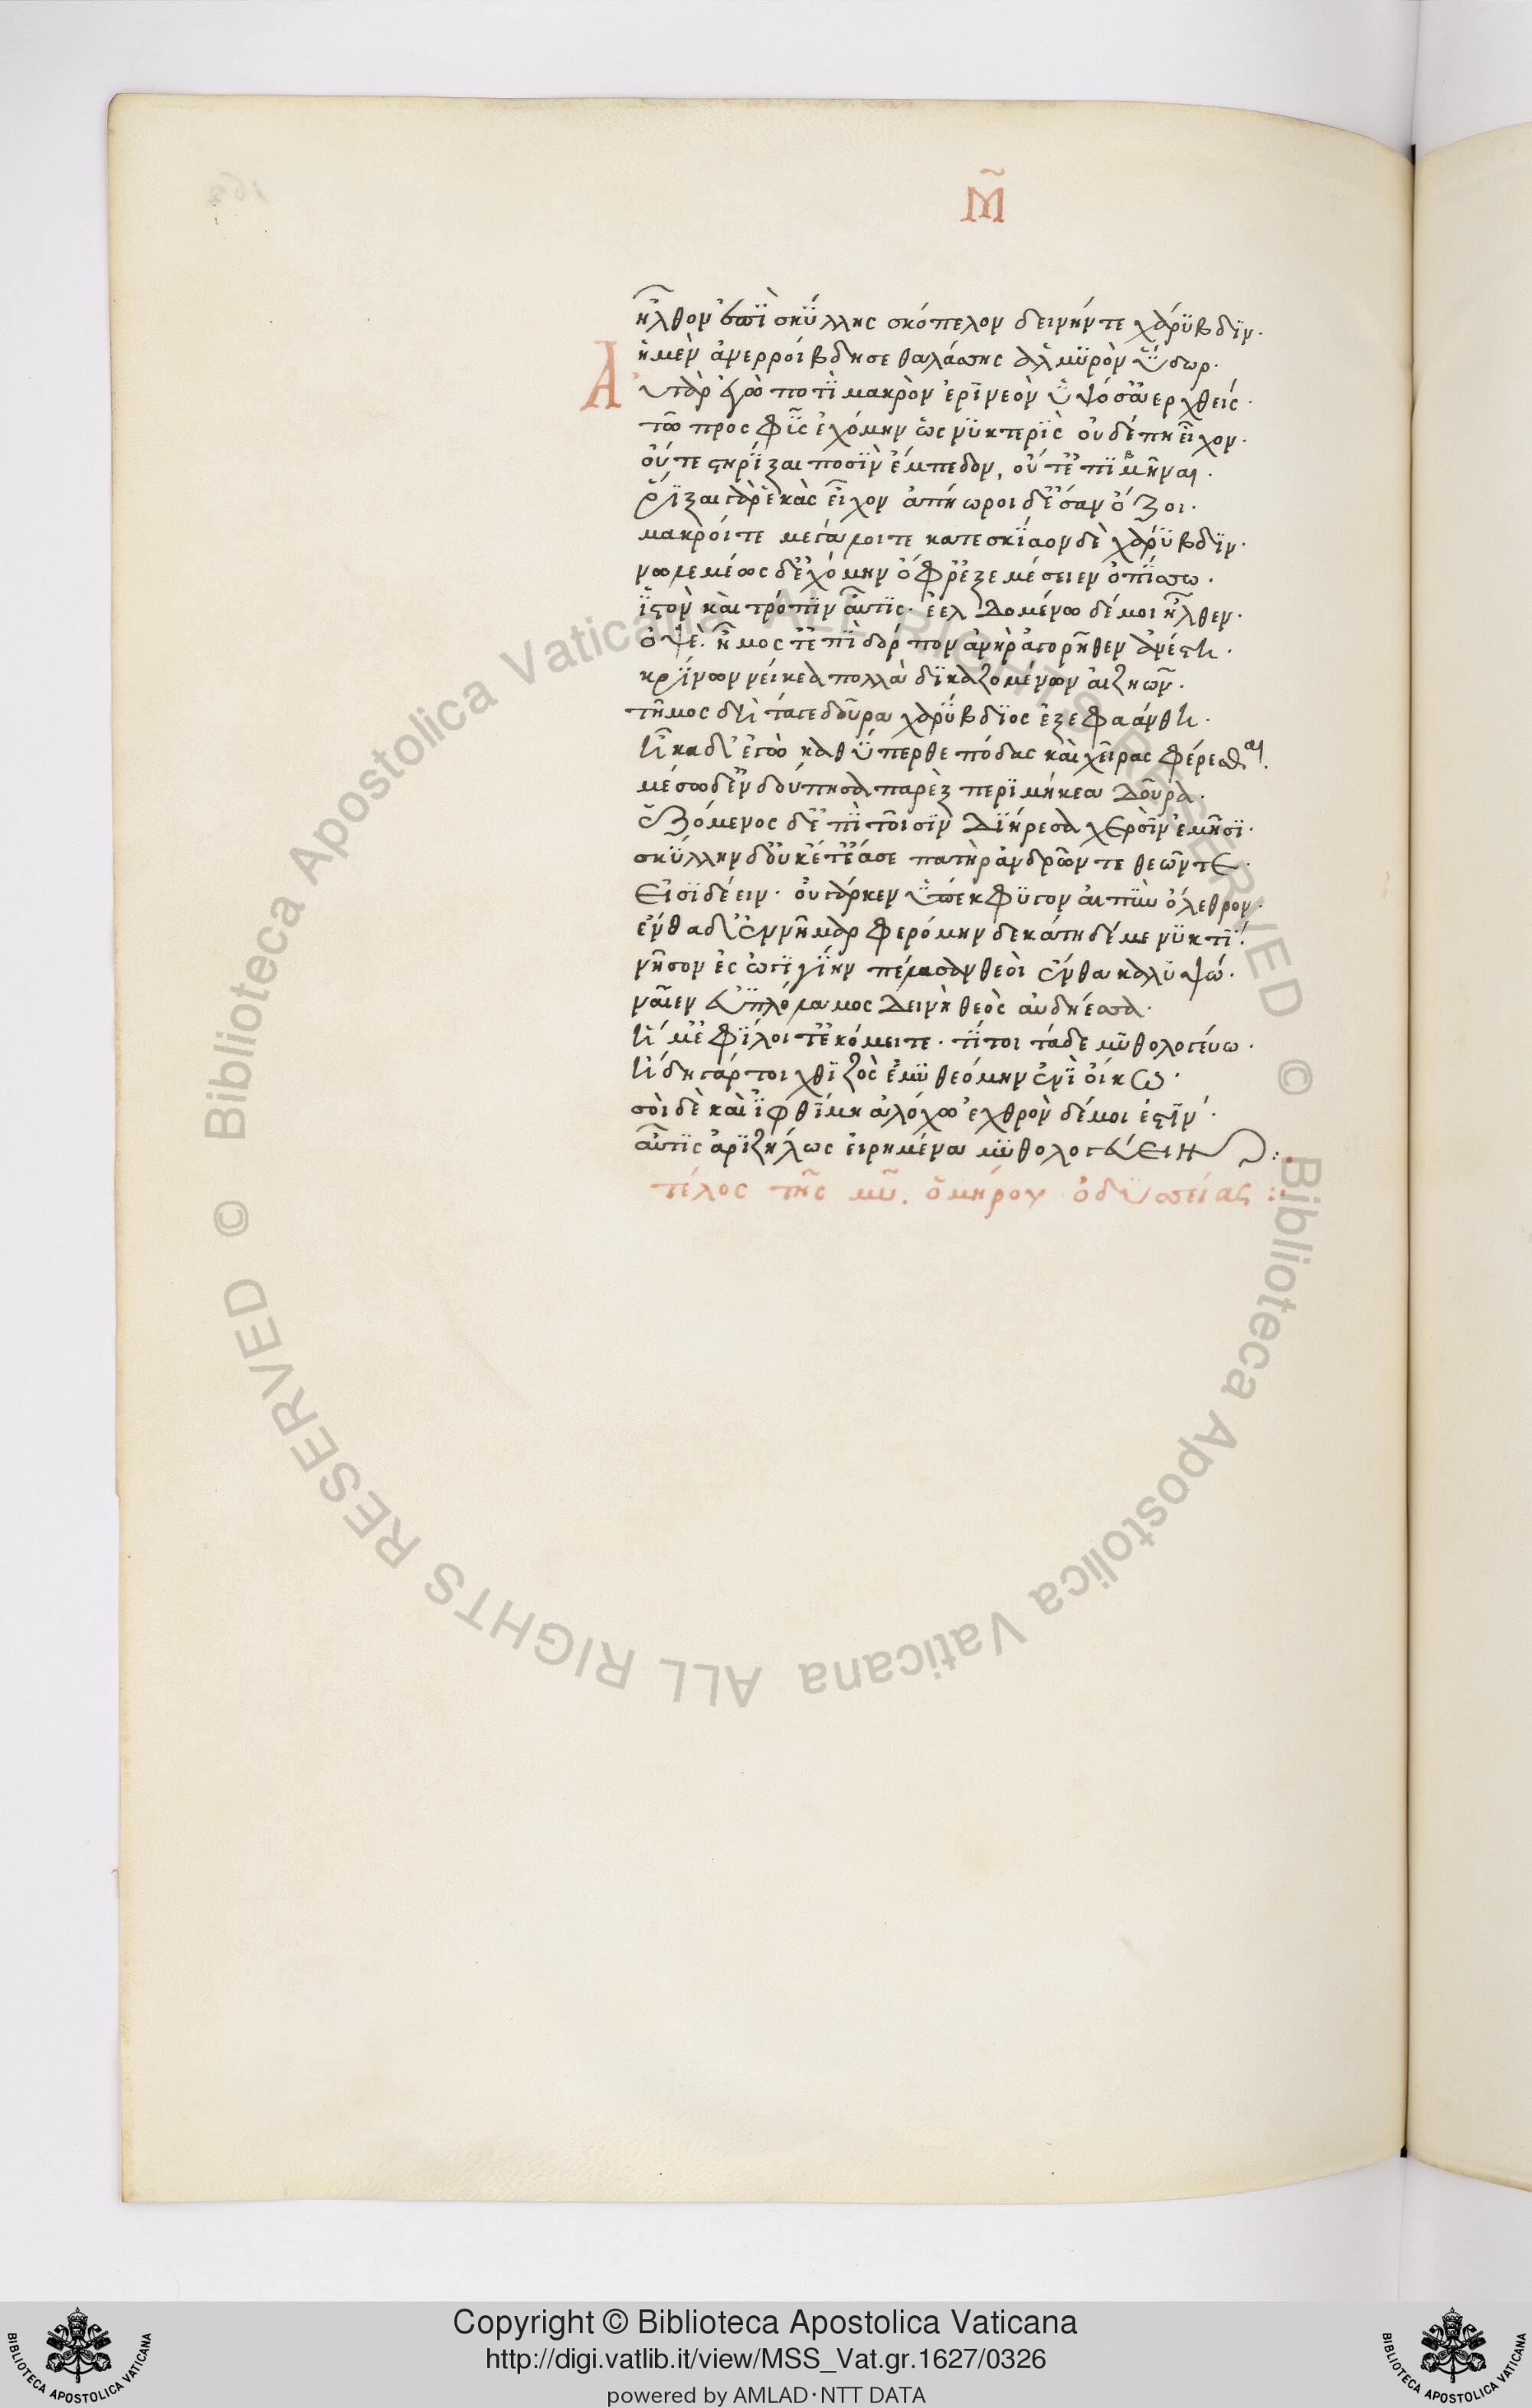 Μ̃
ἦλθον ἐπῒ σκΰλλης σκόπελον δεινήν τε χάρϋβδϊν·
ἡ μὲν ἀνερροίβδησε θαλάσσης ἁλμϋρὸν ὕδωρ·
Αὐτὰρ ἐγὼ ποτῒ μακρὸν ἐρϊνεὸν ὑψόσ' ἀερχθείς·
τῶ προσφῢς ἐχόμην ὡς νϋκτερῒς οὐδέ πη εἶχον·
οὔτε στηρίξαι ποσῒν ἔμπεδον, οὔτ' ἐπϊβῆναι·
ῥίζαι γὰρ ἑκὰς εἶχον ἀπήωροι δ' ἔσαν ὄζοι·
μακροί τε μεγάλοι τε κατεσκΐαον δὲ χάρϋβδϊν·
νωλεμέως δ' ἐχόμην ὄφρ' ἐξεμέσειεν ὀπΐσσω·
ἱστὸν καὶ τρόπϊν αὖτϊς· ἐελδομένω δέ μοι ἦλθεν·
ὀψὲ. ἦμος τ' ἐπῒ δόρπον ἀνὴρ ἀγορῆθεν ἀνέστη·
κρΐνων νείκεα πολλὰ δϊκαζομένων αἰζηῶν·
τῆμος δὴ τάγε δοῦρα χαρΰβδϊος ἐξεφαάνθη·
ἧκα δ' ἐγὼ καθΰπερθε πόδας καὶ χεῖρας φέρεσθαι·
μέσω δ' ἐν δούπησα παρὲξ περϊμήκεα δοῦρα·
ἑζόμενος δ' ἐπῒ τοῖσϊν δϊήρεσα χερσῒν ἐμῆσϊ·
σκΰλλην δ' οὐκέτ' ἔασε πατὴρ ἀνδρῶν τε θεῶν τε·
εἰσϊδέειν· οὐ γάρ κεν ὑπέκφϋγον αἰπῢν ὄλεθρον·
ἔνθα δ' ἐννῆμαρ φερόμην δεκάτη δέ με νϋκτΐ·
νῆσον ἐς ὠγϋγΐην πέλασαν θεοὶ ἔνθα καλϋψώ·
ναίει ἐϋπλόκαμος δεινὴ θεὸς αὐδήεσσα·
ἥ μ' ἐφΐλει τ' ἐκόμει τε· τΐ τοι τάδε μῦθολογεύω·
ἤδη γάρ τοι χθϊζὸς ἐμϋθεόμην ἐνῒ οἴκω·
σοὶ δὲ καὶ ἰφθΐμη ἀλόχω ἐχθρὸν δέ μοι ἐστΐν·
αὖτϊς ἀρϊζήλως εἰρημένα μϋθολογεύειν:
τέλος τῆς μῦ. ὁμήρου ὀδϋσσείας:
Copyright © Biblioteca Apostolica Vaticana
http://digi.vatlib.it/view/MSS_Vat.gr.1627/0326
powered by AMLAD·NTT DATA
BIBLIOTECA APOSTOLICA VATICANA
BIBLIOTECA APOSTOLICA VATICANA
© Biblioteca Apostolica Vaticana ALL RIGHTS RESERVED
© Biblioteca Apostolica Vaticana ALL RIGHTS RESERVED